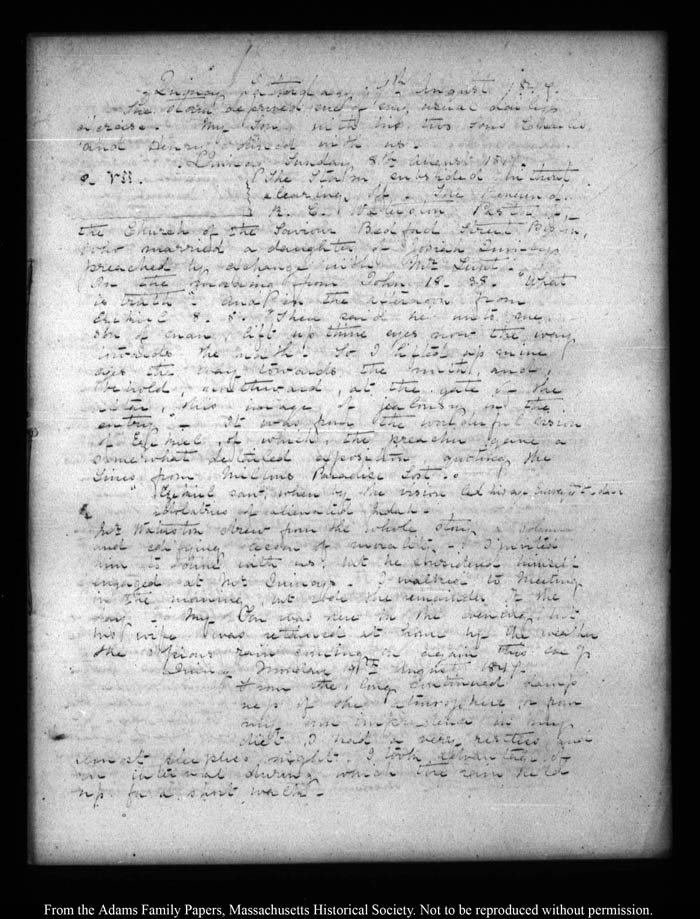 Quincy Saturday 7th August 1847.
The storm deprived me of my usual daily
exercise. My Son with his two Sons
and Henry dined with us.
Quincy Sunday 8th August 1847.
The Storm subsided without
clearing off. The Reverend
R. C. Waterston Pastor of
the Church of the Saviour Bedford Street Boston,
who married a daughter of Josiah Quincy
preached by exchange with Mr Lunt.
In the morning from John 18. 38. "What
is truth" and in the afternoon from
Ezekiel 8. 5. "Then said he unto me
Son of man, lift up thine eyes now the way
towards the north. So I lifted up mine
eyes the way towards the north, and,
behold northward, at the gate of the
altar, this image of jealousy in the
entry." It was from the wonderful vision
of Ezekiel, of which, the preacher gave a
somewhat detailed exposition quoting the
lines from Milton's Paradise Lost.
"Ezekiel saw, when by the vision led his eye survey'd the dark
idolatries of alienated Judah."
Mr Waterston drew from the whole story a solemn
and edifying lesson of morality. I invited
him to dine with us, but he considered himself
engaged at Mr Quincy's. I walked to Meeting
in the morning, but rode the remainder of the
day. My Son was here in the evening, but
his wife was retained at home by the weather
the rain coming on again this
Quincy Monday 9th August 1847.
From the long continued damp
ness of the atmosphere or from
some imprudence in my
diet, I had a very restless and
almost sleepless night. I took advantage of
an interval during which the rain held
up for a short walk.
From the Adams Family Papers, Massachusetts Historical Society. Not to be reproduced without permission.